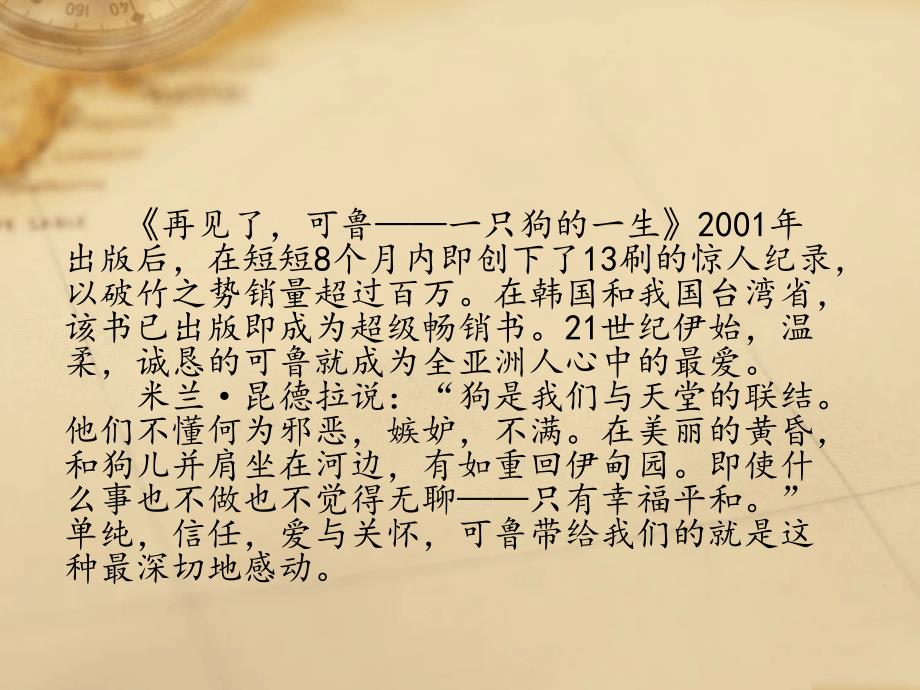 《再见了，可鲁——一只狗的一生》2001年
出版后，在短短8个月内即创下了13刷的惊人纪录，
以破竹之势销量超过百万。在韩国和我国台湾省，
该书已出版即成为超级畅销书。21世纪伊始，温
柔，诚恳的可鲁就成为全亚洲人心中的最爱。
米兰·昆德拉说：“狗是我们与天堂的联结。
他们不懂何为邪恶，嫉妒，不满。在美丽的黄昏，
和狗儿并肩坐在河边，有如重回伊甸园。即使什
么事也不做也不觉得无聊——只有幸福平和。”
单纯，信任，爱与关怀，可鲁带给我们的就是这
种最深切地感动。